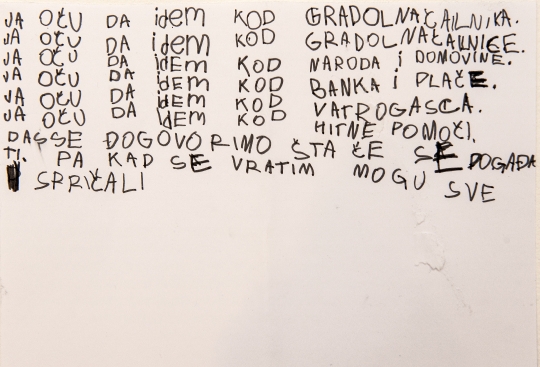 JA OĆU DA idEM KOD GRADOLNAČAILNIKA.
JA OĆU DA idEM KOD GRADOLNAČALNICE.
JA OĆU DA idEM KOD NARODA i DOMOVINE.
JA OĆU DA idEM KOD BANKA i PLAČE.
JA OĆU DA idEM KOD VATROGASCA.
JA OĆU DA idEM KOD HITNE POMOĆI.
DASSE DOGOVORIMO ŠTA ĆE SE DOGAĐA
TI. PA KAD SE VRATIM MOGU SVE
SPRIČALI